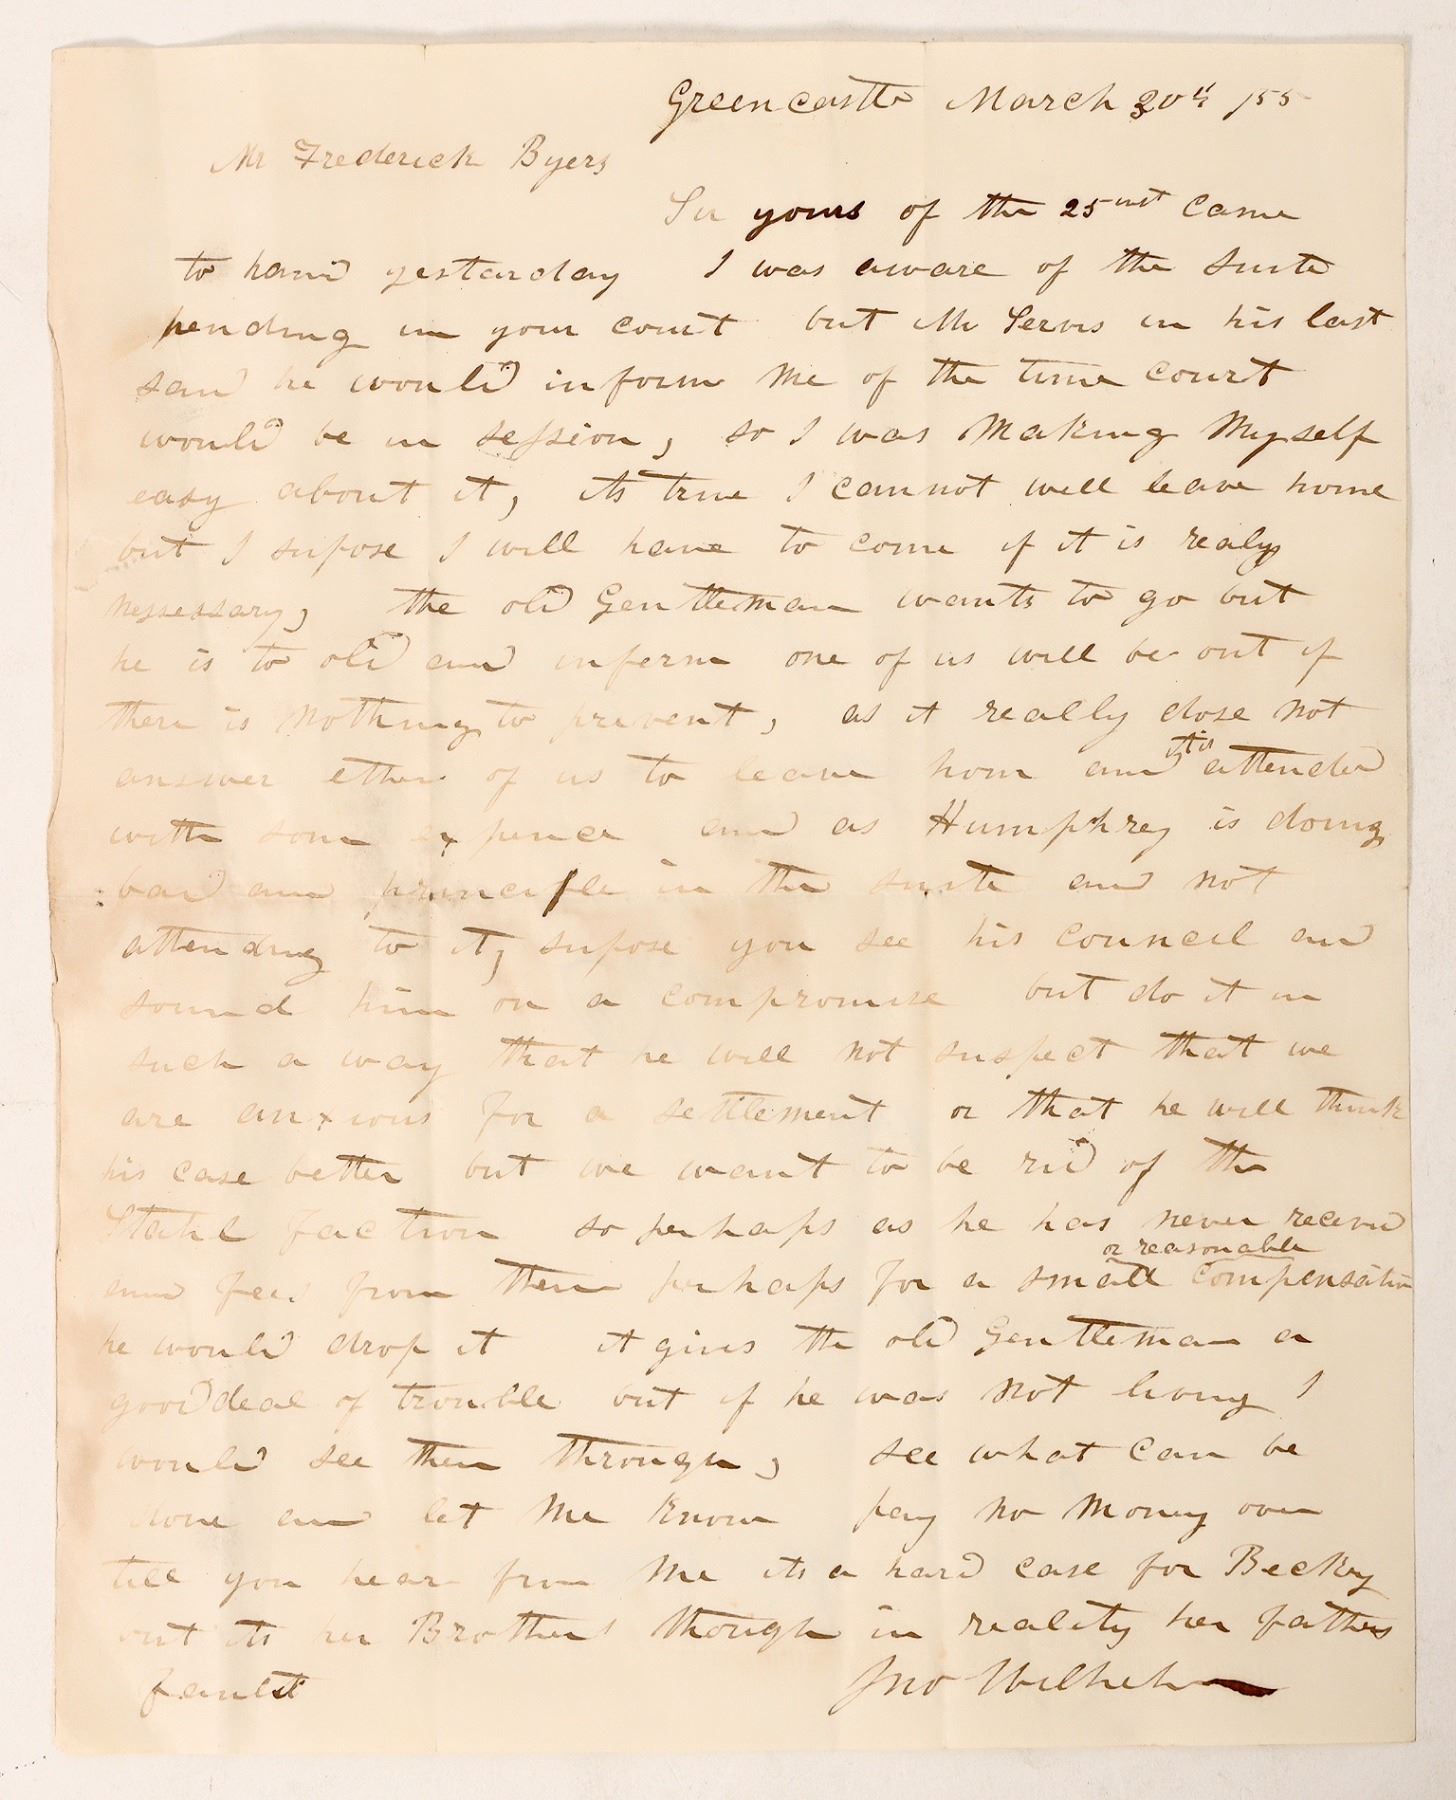 Greencastle March 30th /55
Mr Frederick Byers
Sir yours of the 25 inst came
to hand yestarday I was aware of the suite
pending in your court but Mr Servis in his last
said he would inform me of the time court
would be in session, so I was making myself
easy about it, its true I cannot well leave home
but I supose I will have to come if it is realy
nessessary, the old Gentleman wants to go but
he is to old and inferm one of us will be out if
there is nothing to prevent, as it really dose not
answer ether of us to leave hom and it is attended
with som expence and as Humphrey is doing
bad and principle in the suite and not
attending to it, supose you see his council and
sound him on a compromise but do it in
such a way that he will not suspect that we
are anxious for a settlement or that he will think
his case better but we want to be rid of the
Stahl faction so perhaps as he has never received
any fees from them perhaps for a small or reasonable compensation
he would drop it it gives the old Gentleman a
good deal of trouble but if he was not living I
would see them through, see what can be
done and let me know pay no money over
till you hear from me its a hard case for Becky
but its her Brothers though in reality her fathers
fault Jno Wilhelm